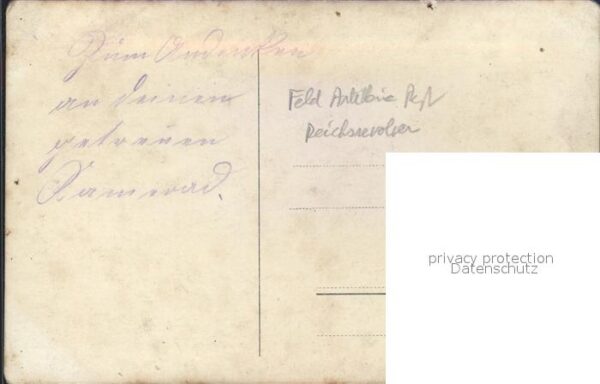 Zum Andenken
an deinen
getreuen
Kamerad.
Feld Artillerie Regt
Reichsrevolver
privacy protection
Datenschutz